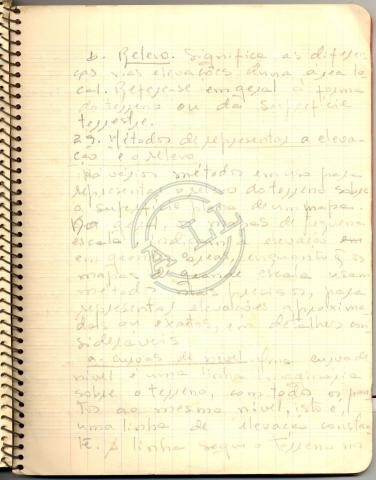 b. Relevo. Significa as diferen-
ças nas elevações duma área lo-
cal. Refere-se em geral à forma
do terreno ou da superfície
terrestre.
29. Métodos de representar a eleva-
ção e o relevo
Há vários métodos em uso para
representar o relevo do terreno sobre
a superfície plana de um mapa.
geral, mapas de pequena
escala indicam elevação em
em geral, enquanto q os
mapas de grande escala usam
métodos mais precisos, para
representar elevações aproxima-
das ou exatas, em detalhes con-
sideráveis
a. curvas de nível. Uma curva de
nível é uma linha imaginária
sobre o terreno, com todos os pon-
tos ao mesmo nível, isto é,
uma linha de elevação constan-
te. A linha segue o terreno no
ALLI